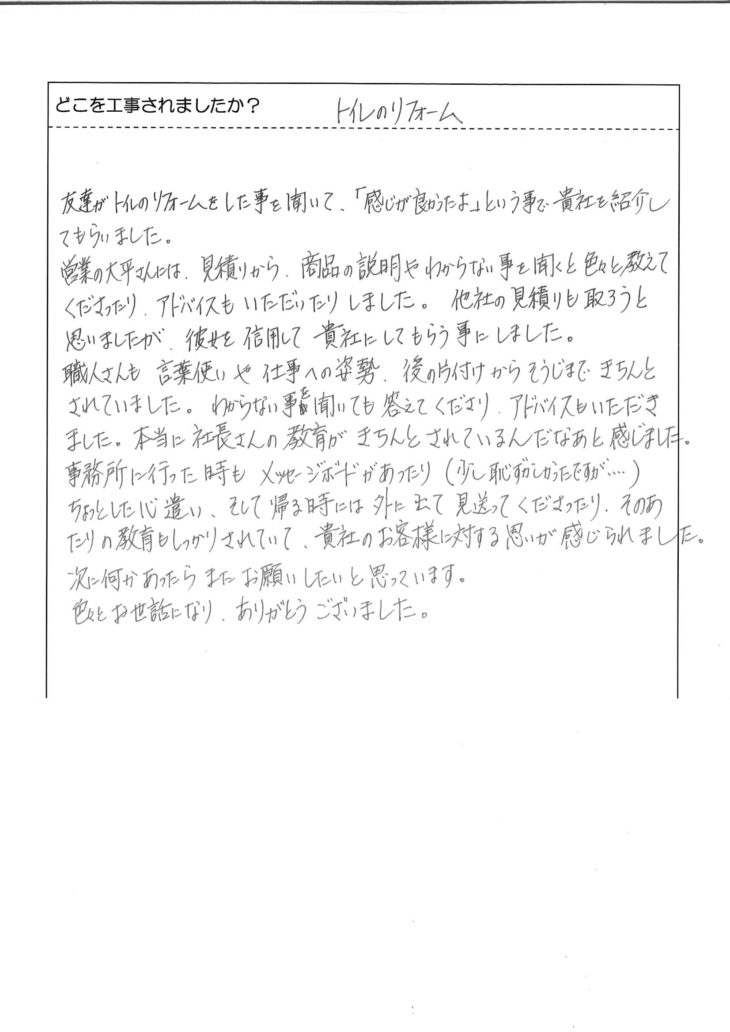 どこを工事されましたか？ トイレのリフォーム
友達がトイレのリフォームをした事を聞いて、「感じが良かったよ」という事で貴社を紹介し
てもらいました。
営業の大平さんには、見積りから、商品の説明やわからない事を聞くと色々と教えて
くださったり、アドバイスもいただいたりしました。他社の見積りも取ろうと
思いましたが、彼女を信用して貴社にしてもらう事にしました。
職人さんも言葉使いや仕事への姿勢、後の片付けからそうじまできちんと
されていました。わからない事を聞いても答えてくださり、アドバイスもいただき
ました。本当に社長さんの教育がきちんとされているんだなあと感じました。
事務所に行った時もメッセージボードがあったり（少し恥ずかしかったですが…）
ちょっとした心遣い、そして帰る時には外に出て見送ってくださったり、そのあ
たりの教育もしっかりされていて、貴社のお客様に対する思いが感じられました。
次に何かあったらまたお願いしたいと思っています。
色々とお世話になり、ありがとうございました。